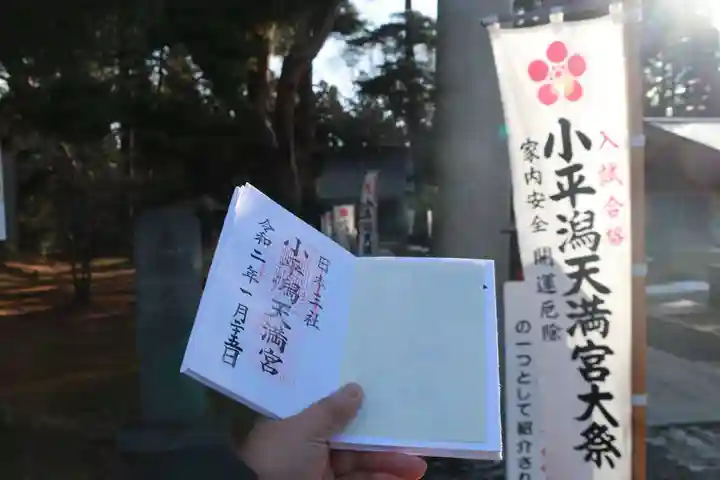 日本三社
小平潟天満宮
令和二年一月二十五日
入試合格
小平潟天満宮大祭
家内安全 開運厄除
の一つとして紹介され